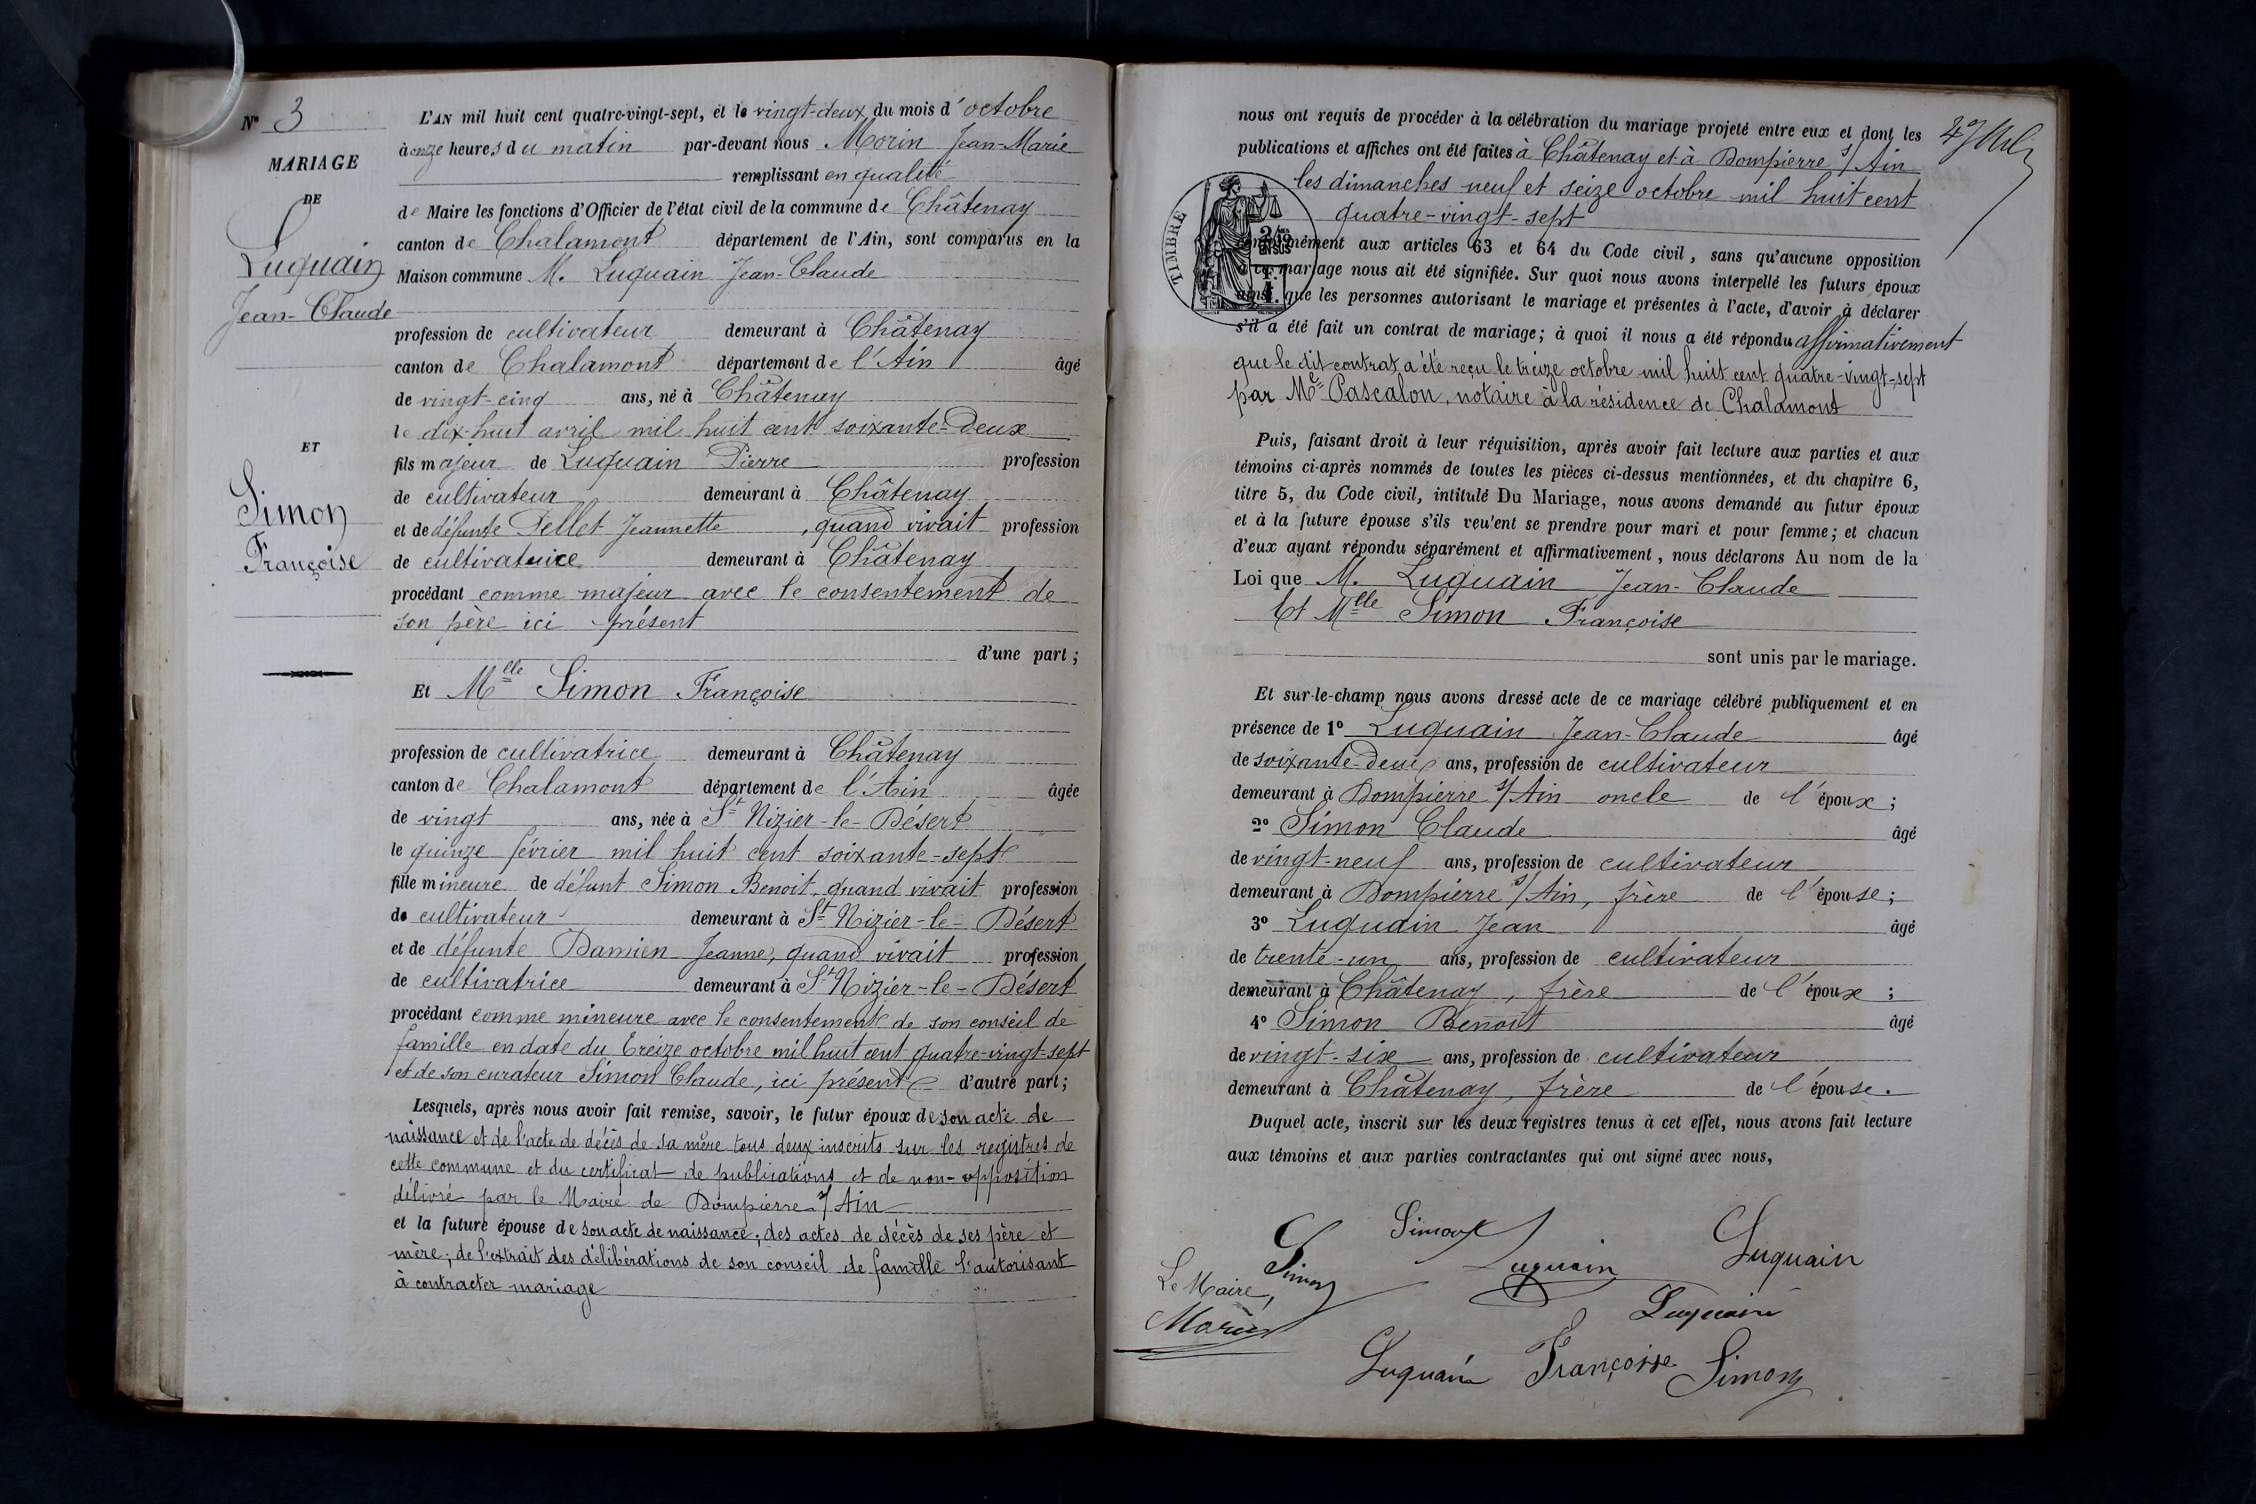 N° 3
MARIAGE
DE
Luquain
Jean-Claude
ET
Simon
Françoise
L'AN mil huit cent quatre-vingt-sept, et le vingt-deux du mois d'octobre
à onze heures du matin par-devant nous Morin Jean-Marie
remplissant en qualité
de Maire les fonctions d'Officier de l'état civil de la commune de Châtenay
canton de Chalamont département de l'Ain, sont comparus en la
Maison commune M. Luquain Jean-Claude
profession de cultivateur demeurant à Châtenay
canton de Chalamont département de l'Ain âgé
de vingt-cinq ans, né à Châtenay
le dix-huit avril mil huit cent soixante-deux
fils majeur de Luquain Pierre profession
de cultivateur demeurant à Châtenay
et de défunte Pellet Jeannette, quand vivait profession
de cultivatrice demeurant à Châtenay
procédant comme majeur avec le consentement de
son père ici présent
d'une part ;
Et Melle Simon Françoise
profession de cultivatrice demeurant à Châtenay
canton de Chalamont département de l'Ain âgée
de vingt ans, née à St Nizier-le-Désert
le quinze février mil huit cent soixante-sept
fille mineure de défunt Simon Benoit, quand vivait profession
de cultivateur demeurant à St Nizier-le-Désert
et de défunte Damien Jeanne, quand vivait profession
de cultivatrice demeurant à St Nizier-le-Désert
procédant comme mineure avec le consentement de son conseil de
famille en date du treize octobre mil huit cent quatre-vingt-sept
et de son curateur Simon Claude, ici présent d'autre part ;
Lesquels, après nous avoir fait remise, savoir, le futur époux de son acte de
naissance et de l'acte de décès de sa mère tous deux inscrits sur les registres de
cette commune et du certificat de publications et de non-opposition
délivré par le Maire de Dompierre s/ Ain
et la future épouse de son acte de naissance ; des actes de décès de ses père et
mère ; de l'extrait des délibérations de son conseil de famille l'autorisant
à contracter mariage
nous ont requis de procéder à la célébration du mariage projeté entre eux et dont les
publications et affiches ont été faites à Châtenay et à Dompierre s/ Ain
les dimanches neuf et seize octobre mil huit cent
quatre-vingt-sept
TIMBRE
conformément aux articles 63 et 64 du Code civil, sans qu'aucune opposition
à ce mariage nous ait été signifiée. Sur quoi nous avons interpellé les futurs époux
ainsi que les personnes autorisant le mariage et présentes à l'acte, d'avoir à déclarer
s'il a été fait un contrat de mariage ; à quoi il nous a été répondu affirmativement
que le dit contrat a été reçu le treize octobre mil huit cent quatre-vingt-sept
par Me Pascalon, notaire à la résidence de Chalamont
Puis, faisant droit à leur réquisition, après avoir fait lecture aux parties et aux
témoins ci-après nommés de toutes les pièces ci-dessus mentionnées, et du chapitre 6,
titre 5, du Code civil, intitulé Du Mariage, nous avons demandé au futur époux
et à la future épouse s'ils veulent se prendre pour mari et pour femme ; et chacun
d'eux ayant répondu séparément et affirmativement, nous déclarons Au nom de la
Loi que M. Luquain Jean-Claude
Et Melle Simon Françoise
sont unis par le mariage.
Et sur-le-champ nous avons dressé acte de ce mariage célébré publiquement et en
présence de 1° Luquain Jean-Claude âgé
de soixante-deux ans, profession de cultivateur
demeurant à Dompierre s/ Ain oncle de l'époux ;
2° Simon Claude âgé
de vingt-neuf ans, profession de cultivateur
demeurant à Dompierre s/ Ain, frère de l'épouse ;
3° Luquain Jean âgé
de trente-un ans, profession de cultivateur
demeurant à Châtenay, frère de l'époux ;
4° Simon Benoit âgé
de vingt-six ans, profession de cultivateur
demeurant à Châtenay, frère de l'épouse.
Duquel acte, inscrit sur les deux registres tenus à cet effet, nous avons fait lecture
aux témoins et aux parties contractantes qui ont signé avec nous,
Simon Luquain
Simon Luquain
Le Maire,
Morin Luquain
Luquain Françoise Simon